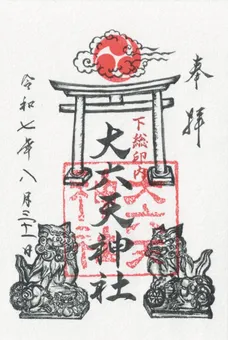 奉拝
下総印内
大六天神社
令和七年八月三十一日